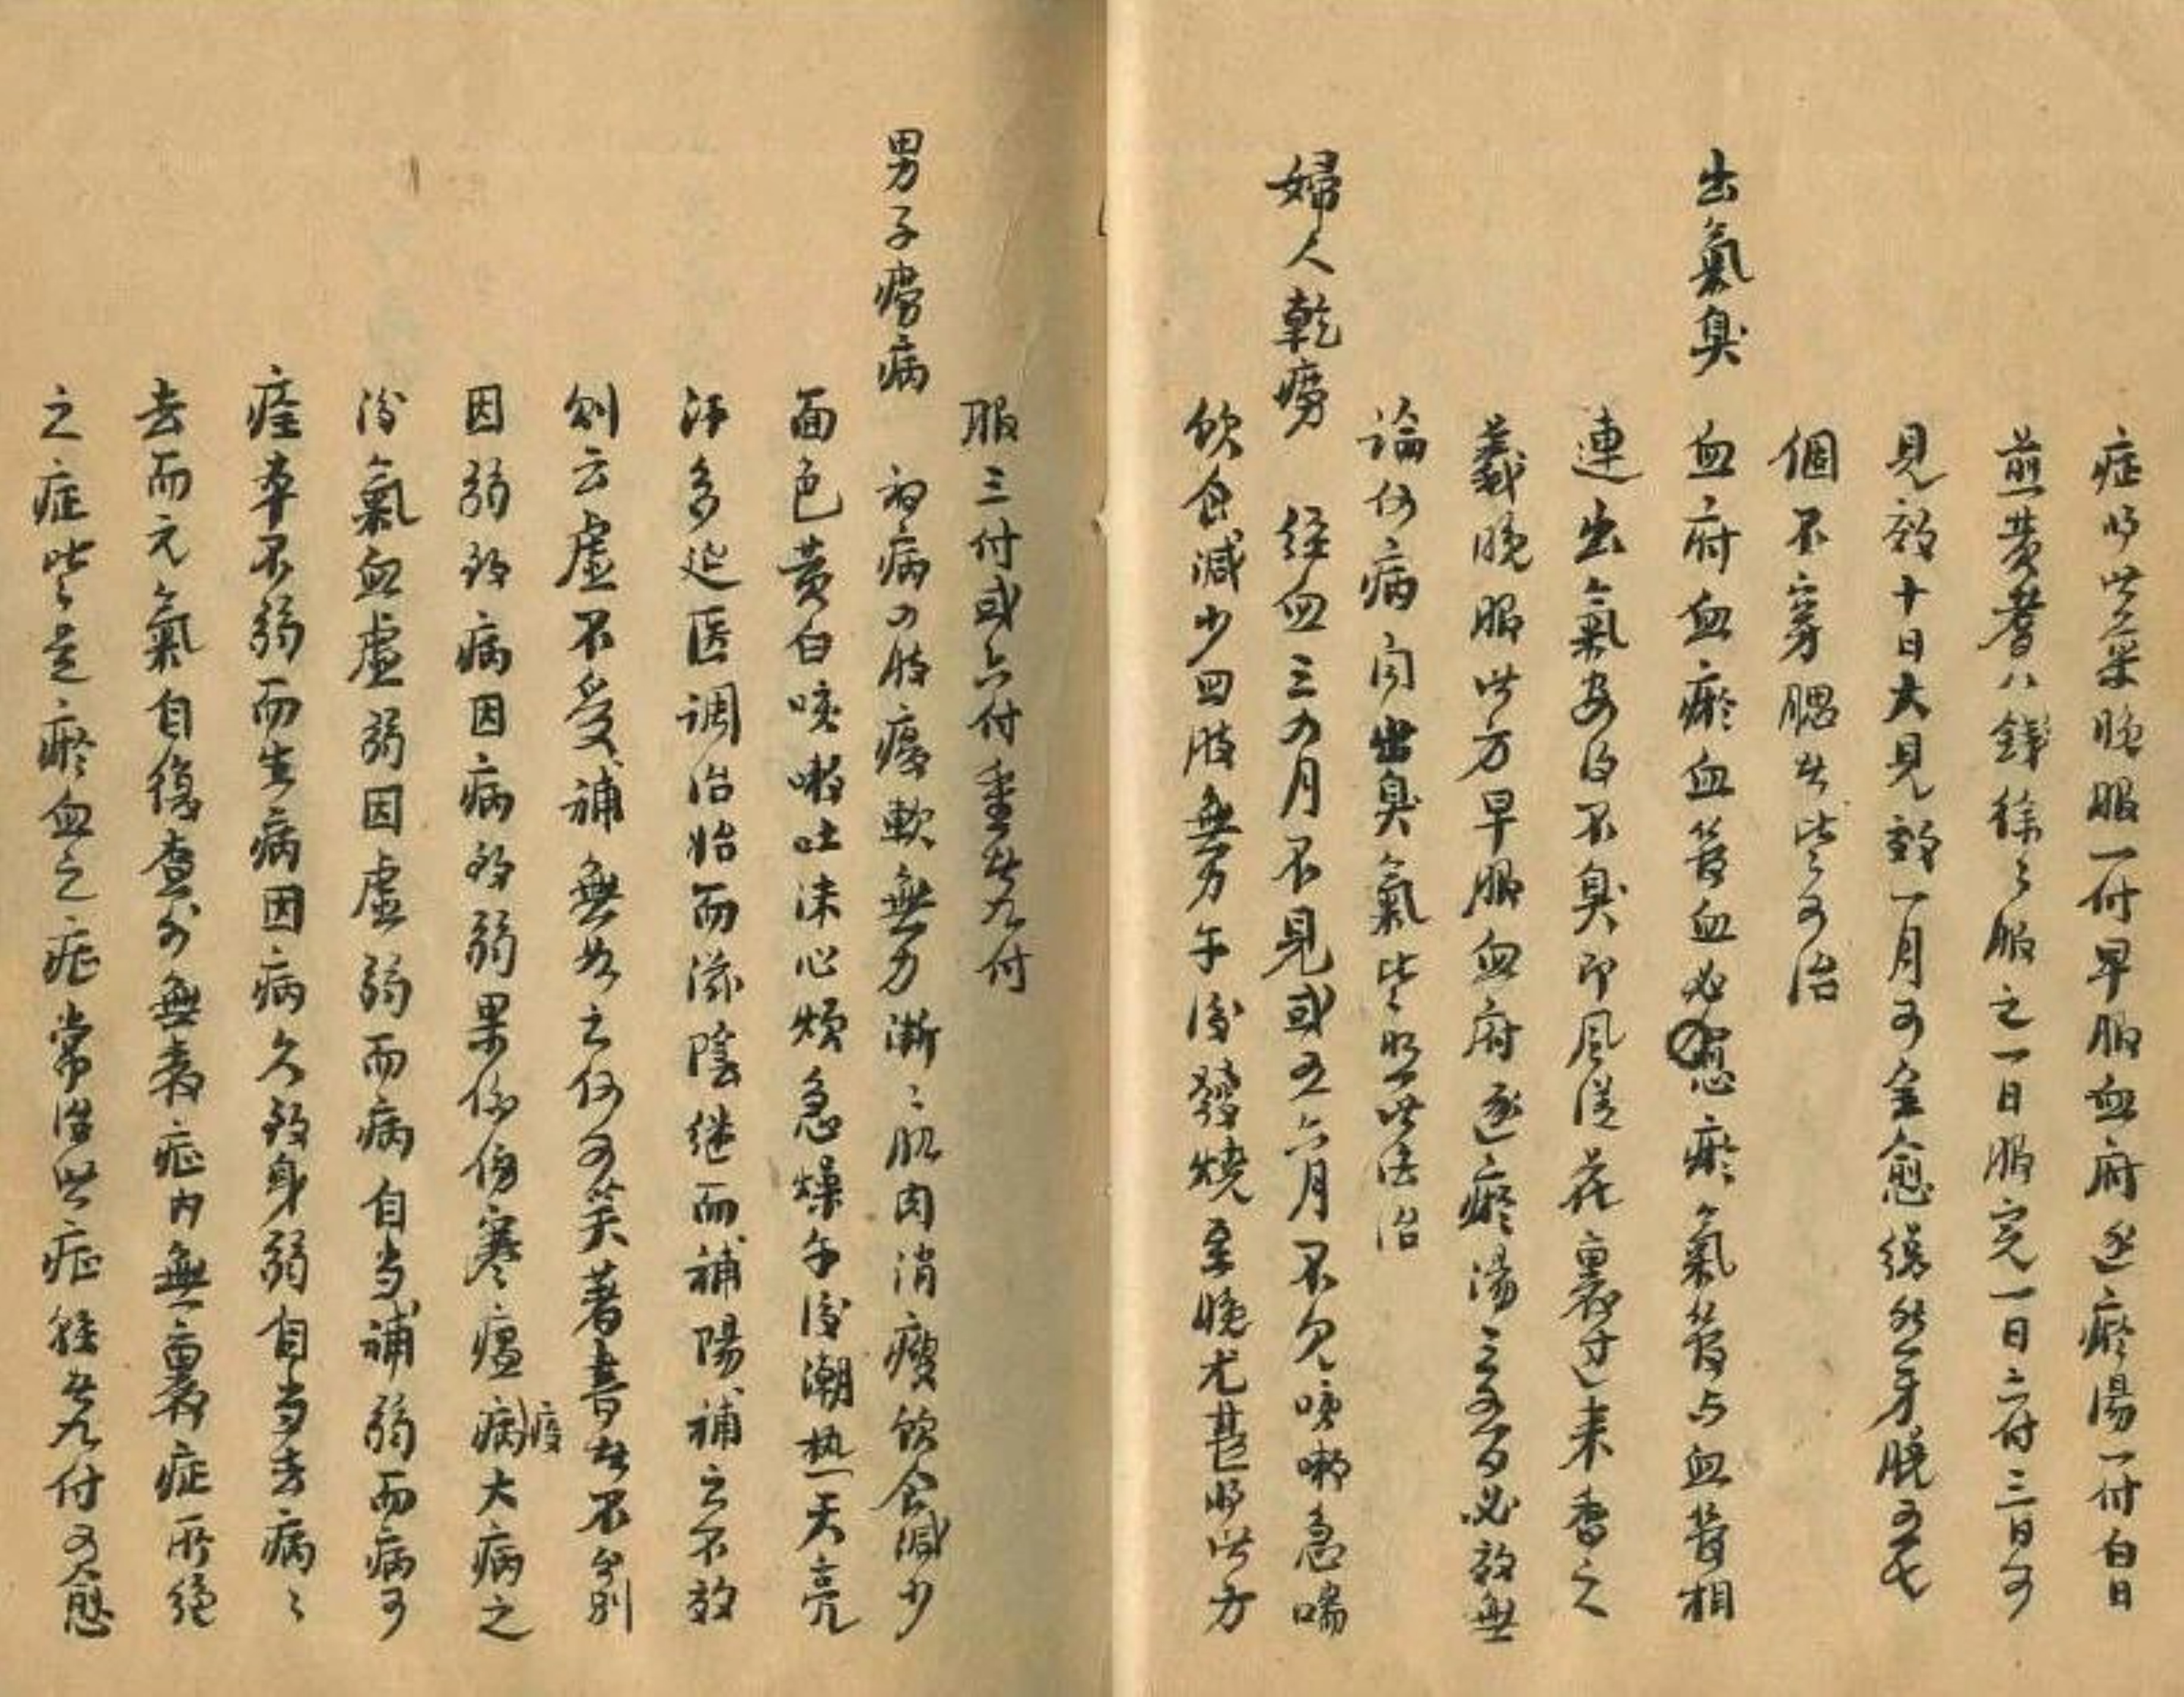 症以此藥晚服一付早服血府逐瘀湯一付白日
煎黄耆八錢徐々服之一日服完一日三付三日可
見效十日大見效一月可全愈縱然牙脱五七
個不穿腮者皆可治
出氣臭 血府血瘀血管血必瘀氣管与血管相
連出氣安得不臭即風從花裏过来香之
義晚服此方早服血府逐瘀湯三五日必效無
論何病闻出臭氣皆照此法治
婦人乾癆 經血三四月不見或五六月不见咳嗽急喘
飲食減少四肢無力午後發燒至晚尤甚以此方
服三付或六付重者九付
男子癆病 初病四肢痠軟無力漸々肌肉消瘦飲食減少
面色黄白咳嗽吐沫心煩急燥午後潮热天亮
汗多延医调治始而滋陰继而補陽補之不效
則云虚不受補無如之何可笑著書者不分别
因弱致病因病致弱果係傷寒瘟病疫大病之
後氣血虚弱因虚弱而病自当補弱而病可
痊本不弱而生病因病久致身弱自当去病々
去而元氣自復查外無表症内無裏症所见
之症皆是瘀血之症常治此症轻者九付可愈